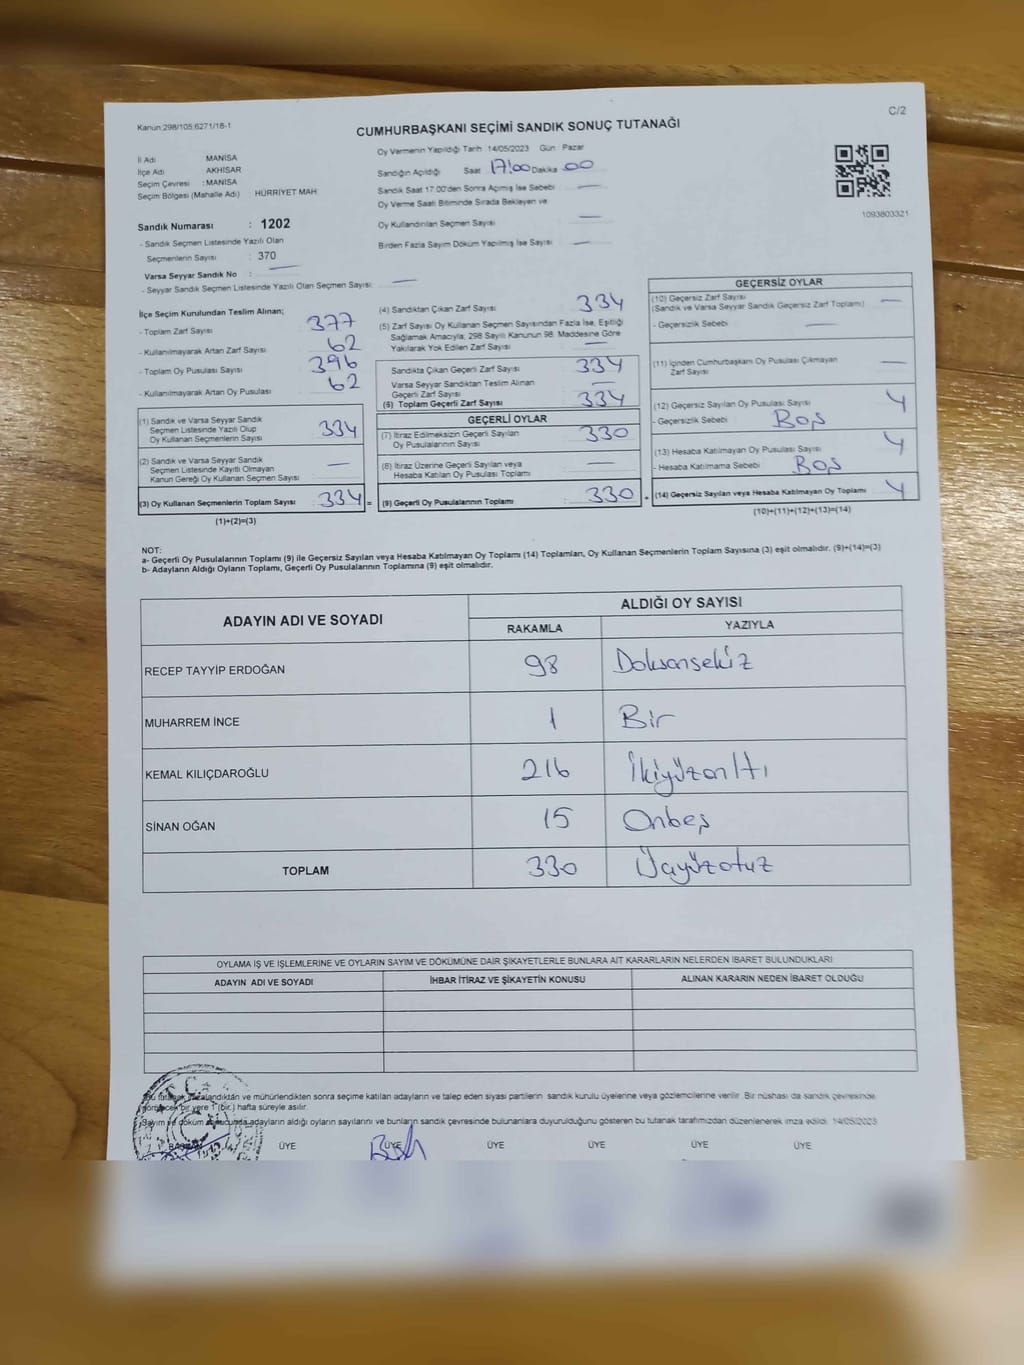 Kanun:298/105.6271/18-1
C/2
CUMHURBAŞKANI SEÇİMİ SANDIK SONUÇ TUTANAĞI
İl Adı MANİSA
İlçe Adı AKHİSAR
Seçim Çevresi : MANİSA
Seçim Bölgesi (Mahalle Adı) HÜRRİYET MAH.
Sandık Numarası : 1202
- Sandık Seçmen Listesinde Yazılı Olan
Seçmenlerin Sayısı : 370
Varsa Seyyar Sandık No : —
- Seyyar Sandık Seçmen Listesinde Yazılı Olan Seçmen Sayısı: —
Oy Vermenin Yapıldığı Tarih 14/05/2023 Gün : Pazar
Sandığın Açıldığı Saat 17:00 Dakika 00
Sandık Saat 17.00'den Sonra Açımış İse Sebebi —
Oy Verme Saati Bitiminde Sırada Bekleyen ve
Oy Kullandırılan Seçmen Sayısı —
Birden Fazla Sayım Döküm Yapılmış İse Sayısı —
1093803321
İlçe Seçim Kurulundan Teslim Alınan;
- Toplam Zarf Sayısı 377
- Kullanılmayarak Artan Zarf Sayısı 62
- Toplam Oy Pusulası Sayısı 396
- Kullanılmayarak Artan Oy Pusulası 62
(1) Sandık ve Varsa Seyyar Sandık
Seçmen Listesinde Yazılı Olup
Oy Kullanan Seçmenlerin Sayısı 334
(2) Sandık ve Varsa Seyyar Sandık
Seçmen Listesinde Kayıtlı Olmayan
Kanun Gereği Oy Kullanan Seçmen Sayısı —
(3) Oy Kullanan Seçmenlerin Toplam Sayısı 334 =
(1)+(2)=(3)
(4) Sandıktan Çıkan Zarf Sayısı 334
(5) Zarf Sayısı Oy Kullanan Seçmen Sayısından Fazla İse, Eşitliği
Sağlamak Amacıyla; 298 Sayılı Kanunun 98. Maddesine Göre
Yakılarak Yok Edilen Zarf Sayısı —
Sandıkta Çıkan Geçerli Zarf Sayısı 334
Varsa Seyyar Sandıktan Teslim Alınan
Geçerli Zarf Sayısı —
(6) Toplam Geçerli Zarf Sayısı 334
GEÇERLİ OYLAR
(7) İtiraz Edilmeksizin Geçerli Sayılan
Oy Pusulalarının Sayısı 330
(8) İtiraz Üzerine Geçerli Sayılan veya
Hesaba Katılan Oy Pusulası Toplamı —
(9) Geçerli Oy Pusulalarının Toplamı 330 +
GEÇERSİZ OYLAR
(10) Geçersiz Zarf Sayısı —
(Sandık ve Varsa Seyyar Sandık Geçersiz Zarf Toplamı)
- Geçersizlik Sebebi —
(11) İçinden Cumhurbaşkanı Oy Pusulası Çıkmayan
Zarf Sayısı —
(12) Geçersiz Sayılan Oy Pusulası Sayısı 4
- Geçersizlik Sebebi Boş
(13) Hesaba Katılmayan Oy Pusulası Sayısı 4
- Hesaba Katılmama Sebebi Boş
(14) Geçersiz Sayılan veya Hesaba Katılmayan Oy Toplamı 4
(10)+(11)+(12)+(13)=(14)
NOT:
a- Geçerli Oy Pusulalarının Toplamı (9) ile Geçersiz Sayılan veya Hesaba Katılmayan Oy Toplamı (14) Toplamları, Oy Kullanan Seçmenlerin Toplam Sayısına (3) eşit olmalıdır. (9)+(14)=(3)
b- Adayların Aldığı Oyların Toplamı, Geçerli Oy Pusulalarının Toplamına (9) eşit olmalıdır.
ADAYIN ADI VE SOYADI ALDIĞI OY SAYISI
RAKAMLA YAZIYLA
RECEP TAYYİP ERDOĞAN 98 Doksansekiz
MUHARREM İNCE 1 Bir
KEMAL KILIÇDAROĞLU 216 İkiyüzonltı
SİNAN OĞAN 15 Onbeş
TOPLAM 330 Üçyüzotuz
OYLAMA İŞ VE İŞLEMLERİNE VE OYLARIN SAYIM VE DÖKÜMÜNE DAİR ŞİKAYETLERLE BUNLARA AİT KARARLARIN NELERDEN İBARET BULUNDUKLARI
ADAYIN ADI VE SOYADI İHBAR İTİRAZ VE ŞİKAYETİN KONUSU ALINAN KARARIN NEDEN İBARET OLDUĞU
Bu tutanak mühürlendikten sonra seçime katılan adayların ve talep eden siyasi partilerin sandık kurulu üyelerine veya gözlemcilerine verilir. Bir nüshası da sandık çevresinde
bir yere 1 (bir) hafta süreyle asılır.
Sayım ve döküm sonucunda adayların aldığı oyların sayılarını ve bunların sandık çevresinde bulunanlara duyurulduğunu gösteren bu tutanak tarafımızdan düzenlenerek imza edildi. 14/05/2023
ÜYE ÜYE ÜYE ÜYE ÜYE ÜYE